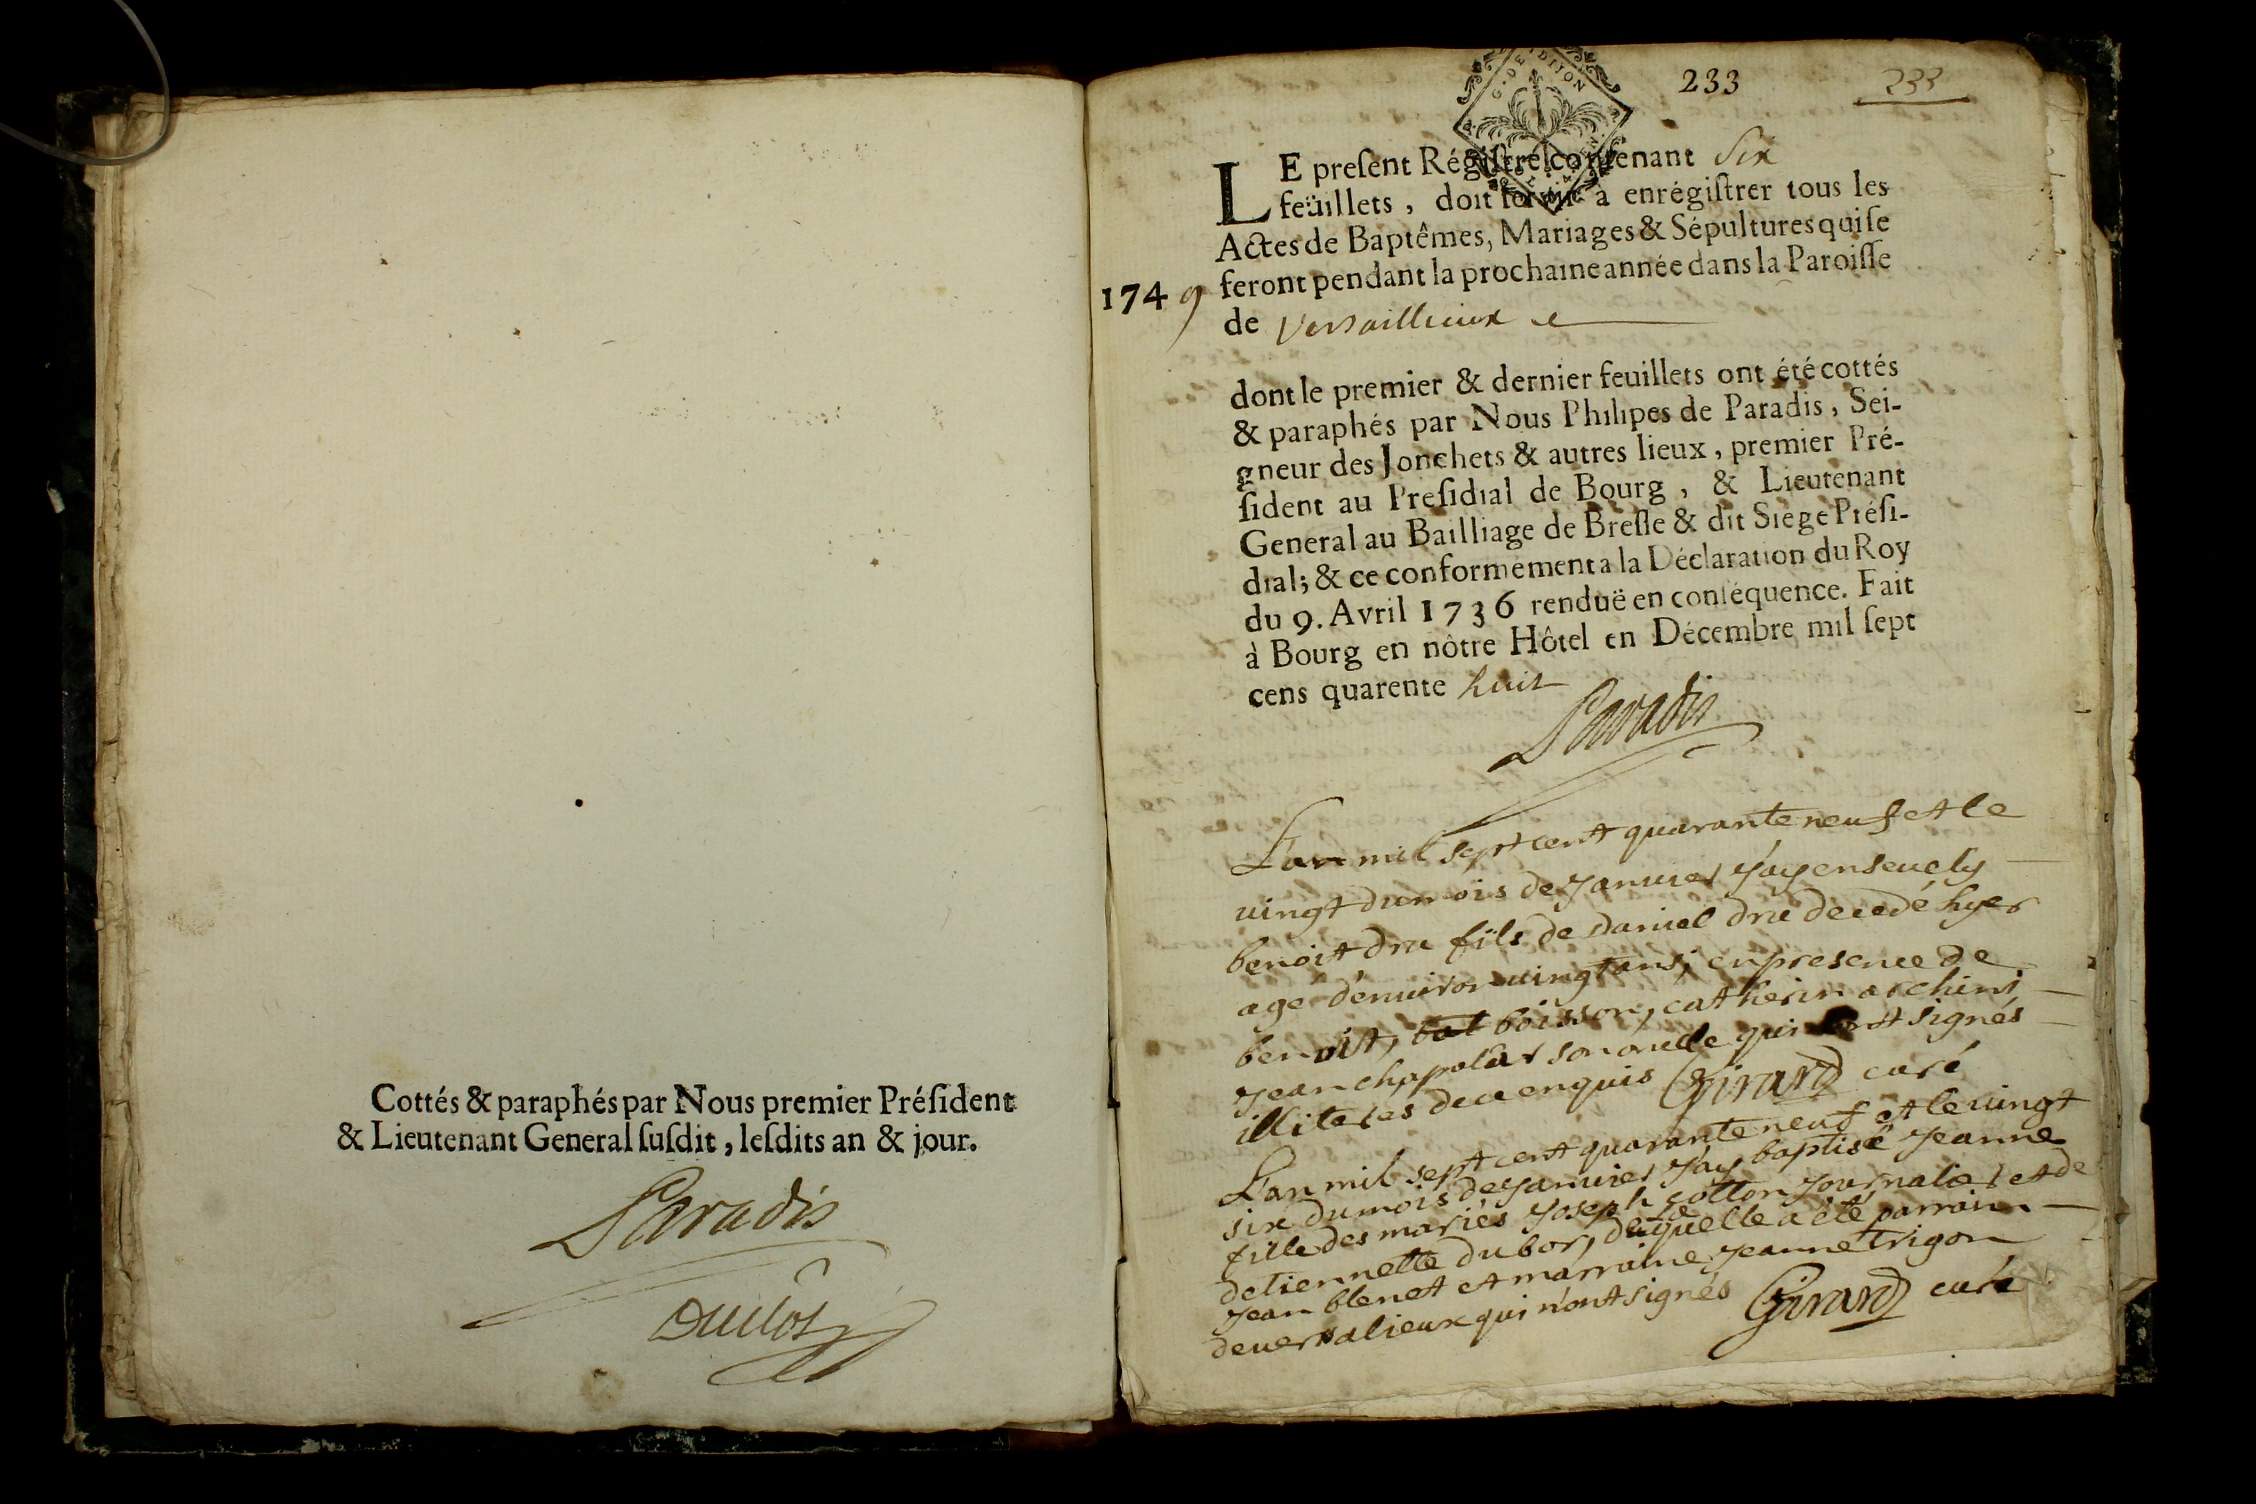 Cottés & paraphés par Nous premier Préſident
& Lieutenant General ſuſdit, leſdits an & jour.
Paradis
Duclos
G. DE DIJON
233
233
LE preſent Régiſtre contenant Six
feüillets, doit ſervir à enrégiſtrer tous les
Actes de Baptêmes, Mariages & Sépultures qui ſe
1749 feront pendant la prochaine année dans la Paroiſſe
de Versaillieux
dont le premier & dernier feuillets ont été cottés
& paraphés par Nous Philipes de Paradis, Sei-
gneur des Jonchets & autres lieux, premier Pré-
ſident au Preſidial de Bourg, & Lieutenant
General au Bailliage de Breſſe & dit Siege Préſi-
dial; & ce conformément a la Déclaration du Roy
du 9. Avril 1736 renduë en conſéquence. Fait
à Bourg en nôtre Hôtel en Décembre mil ſept
cens quarente huit
Paradis
L'an mil sept cent quarante neuf et le
uingt du mois de Januier J'ay enseuely
benoit dru fils de Daniel dru decedé hyer
age d'enuiron uingt ans, en presence de
benoist, bal boisson, catherin archini
Jean chapolar son oncle qui signés
illiteres de ce enquis Girard curé
L'an mil sept cent quarante neuf et le uingt
six du mois de Januier J'ay baptisé Jeanne
fille des mariés Joseph cotton Journalier et de
detiennette dubor, de quelle a été parrain
Jean blenet et marraine Jeanne trigon
de uersalieux qui n'ont signés Girard curé